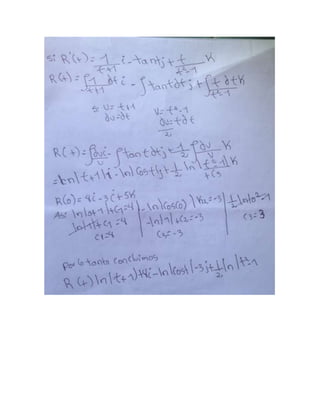 si R'(t) = 1/t+1 i - tant j + t/t²-1 K
R(t) = ∫1/t+1 dt i - ∫tant dt j + ∫t dt/t²-1 K
si u = t+1 V = t²-1
du = dt du/2 = t dt
R(t) = ∫du/u i - ∫tant dt j + 1/2 ∫du/u K
= ln|t+1| i - ln|cost| j + 1/2 ln|t²-1| K
+C3
R(0) = 4i - 3j + 5K
Asi ln|0+1|+C1=4 | -ln|cos(0)|+C2=-3 | 1/2 ln|0²-1
ln|1|+C1=4 -ln|1|+C2=-3 C3=3
C1=4 C2=-3
Por lo tanto concluimos
R(t) ln|t+1)+4i - ln|cost|-3j + 1/2 ln|t²-1